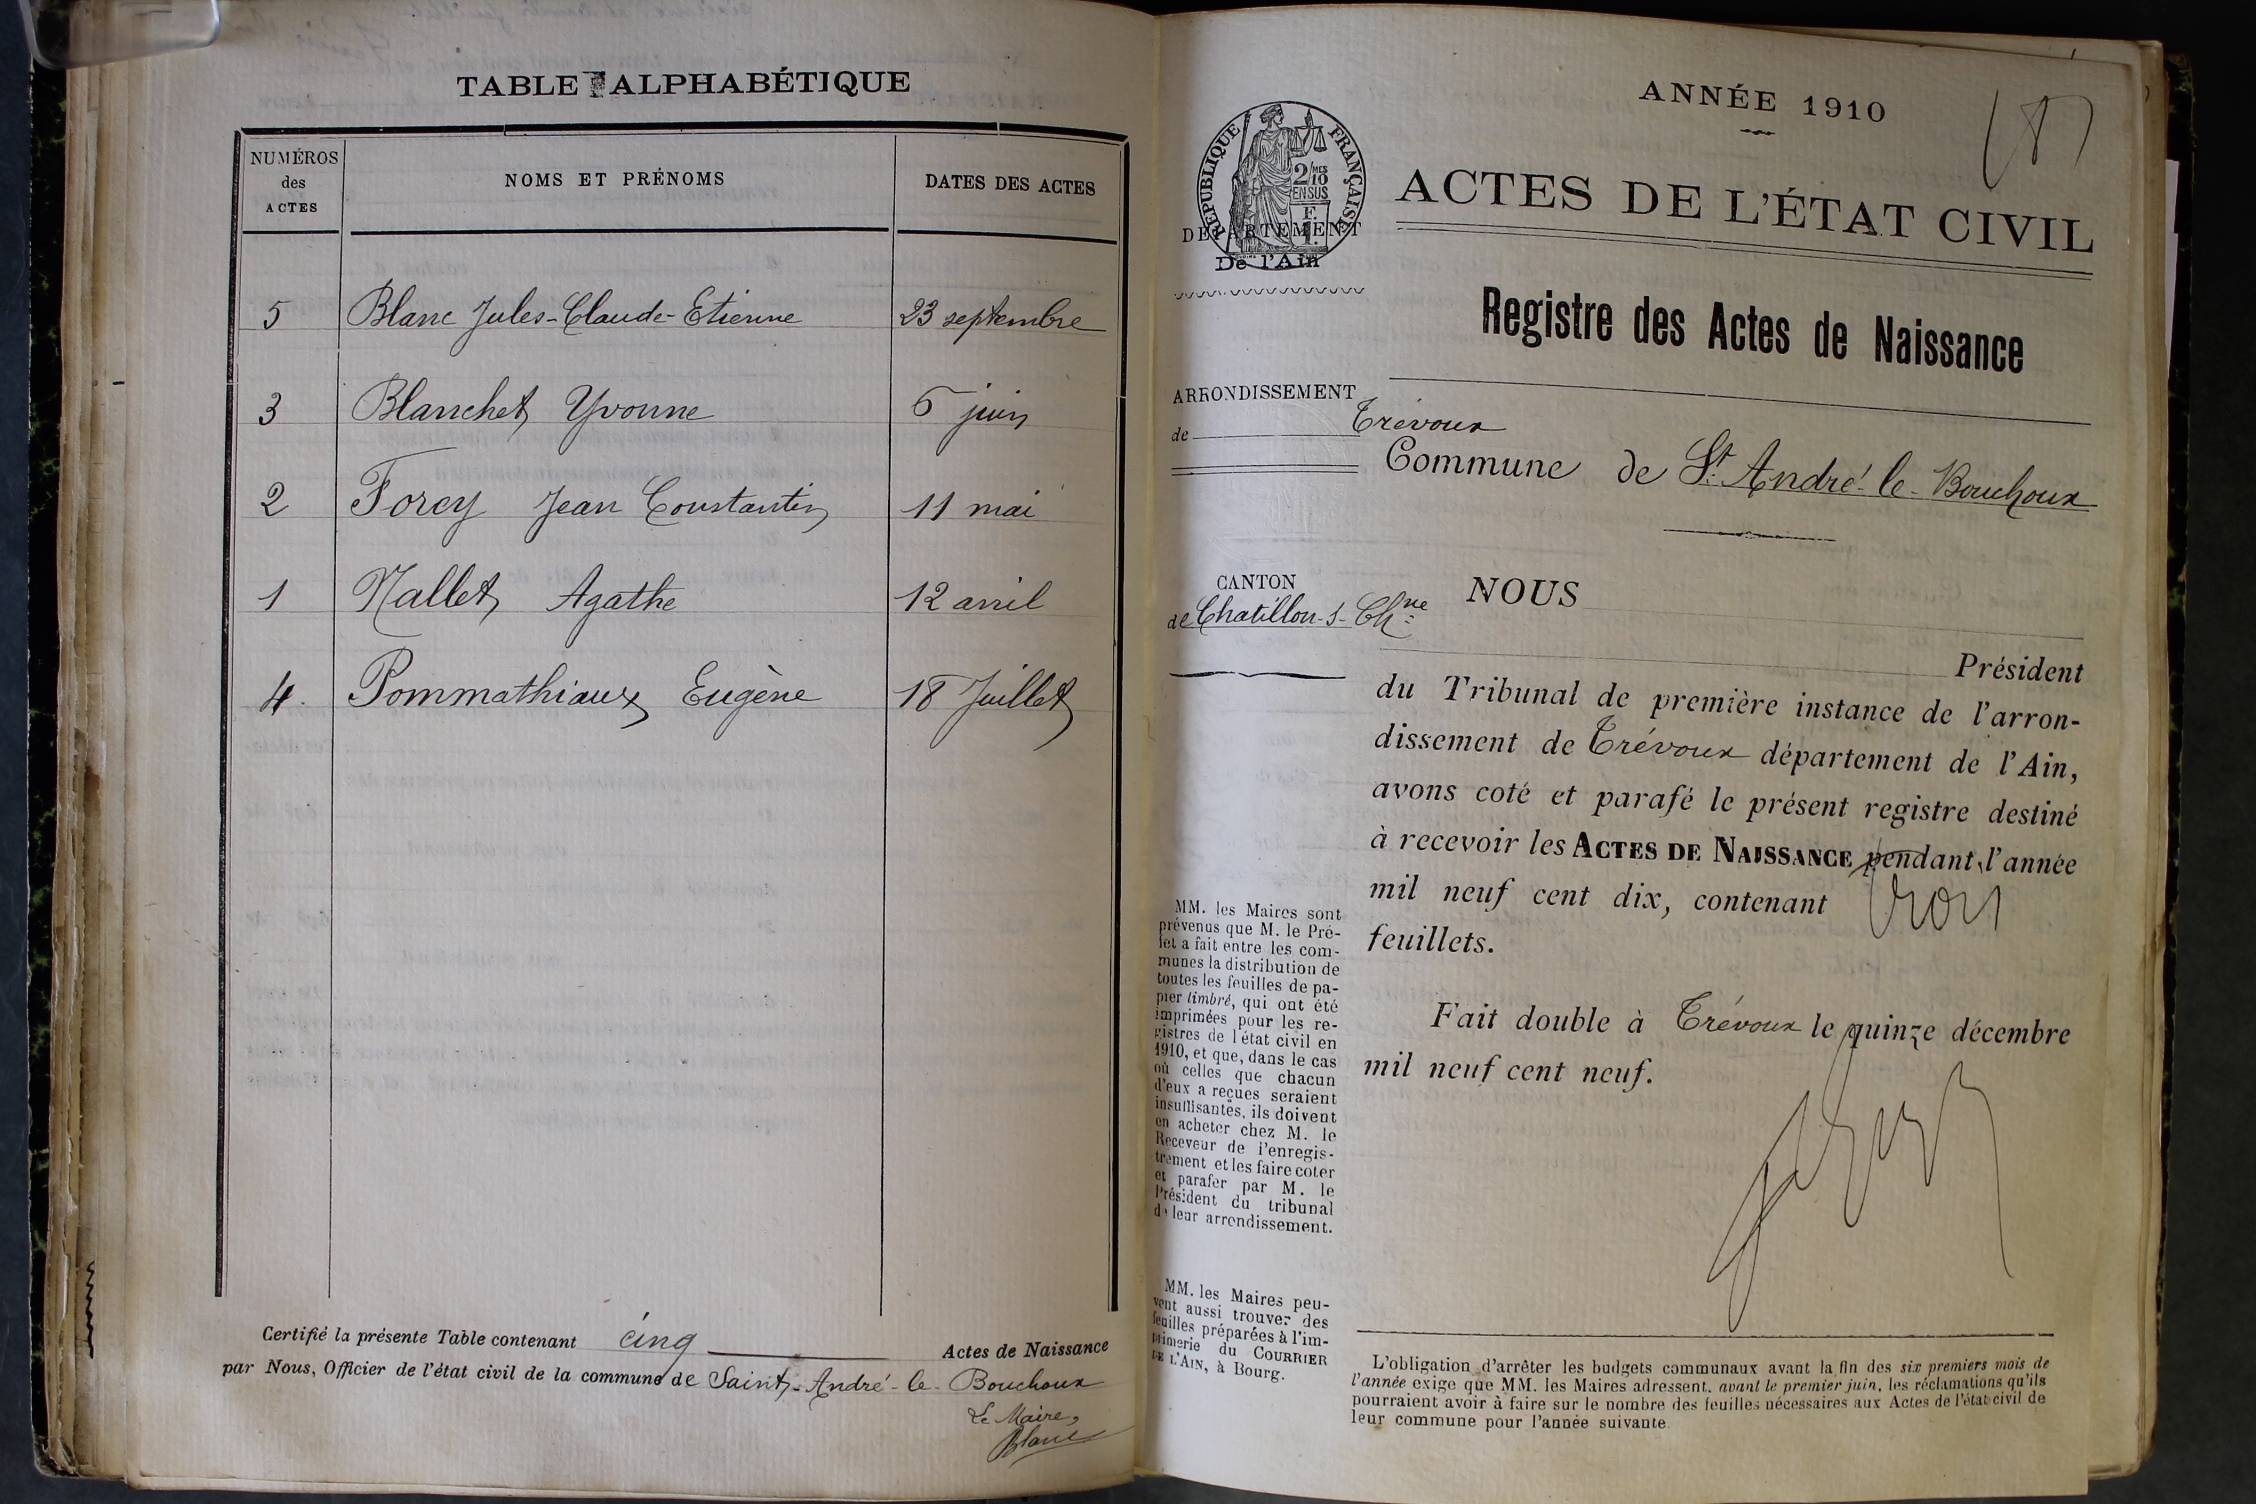 TABLE ALPHABÉTIQUE
NUMÉROS des ACTES | NOMS ET PRÉNOMS | DATES DES ACTES
5 | Blanc Jules-Claude-Etienne | 23 septembre
3 | Blanchet Yvonne | 6 juin
2 | Forey Jean Constantin | 11 mai
1 | Mallet Agathe | 12 avril
4. | Pommathiaux Eugène | 18 Juillet
Certifié la présente Table contenant cinq Actes de Naissance
par Nous, Officier de l'état civil de la commune de Saint-André-le-Bouchoux
Le Maire,
Blanc
ANNÉE 1910
ACTES DE L'ÉTAT CIVIL
RÉPUBLIQUE FRANÇAISE
2/10 MES
EN SUS
DÉPARTEMENT
De l'Ain
Registre des Actes de Naissance
ARRONDISSEMENT
de Trévoux
Commune de St. André-le-Bouchoux
CANTON
de Chatillon-s-Chne
NOUS
Président
du Tribunal de première instance de l'arron-
dissement de Trévoux département de l'Ain,
avons coté et parafé le présent registre destiné
à recevoir les ACTES DE NAISSANCE pendant l'année
mil neuf cent dix, contenant trois
feuillets.
Fait double à Trévoux le quinze décembre
mil neuf cent neuf.
MM. les Maires sont
prévenus que M. le Pré-
fet a fait entre les com-
munes la distribution de
toutes les feuilles de pa-
pier timbré, qui ont été
imprimées pour les re-
gistres de l'état civil en
1910, et que, dans le cas
où celles que chacun
d'eux a reçues seraient
insuffisantes, ils doivent
en acheter chez M. le
Receveur de l'enregis-
trement et les faire coter
et parafer par M. le
Président du tribunal
de leur arrondissement.
MM. les Maires peu-
vent aussi trouver des
feuilles préparées à l'im-
primerie du COURRIER
DE L'AIN, à Bourg.
L'obligation d'arrêter les budgets communaux avant la fin des six premiers mois de
l'année exige que MM. les Maires adressent, avant le premier juin, les réclamations qu'ils
pourraient avoir à faire sur le nombre des feuilles nécessaires aux Actes de l'état civil de
leur commune pour l'année suivante.